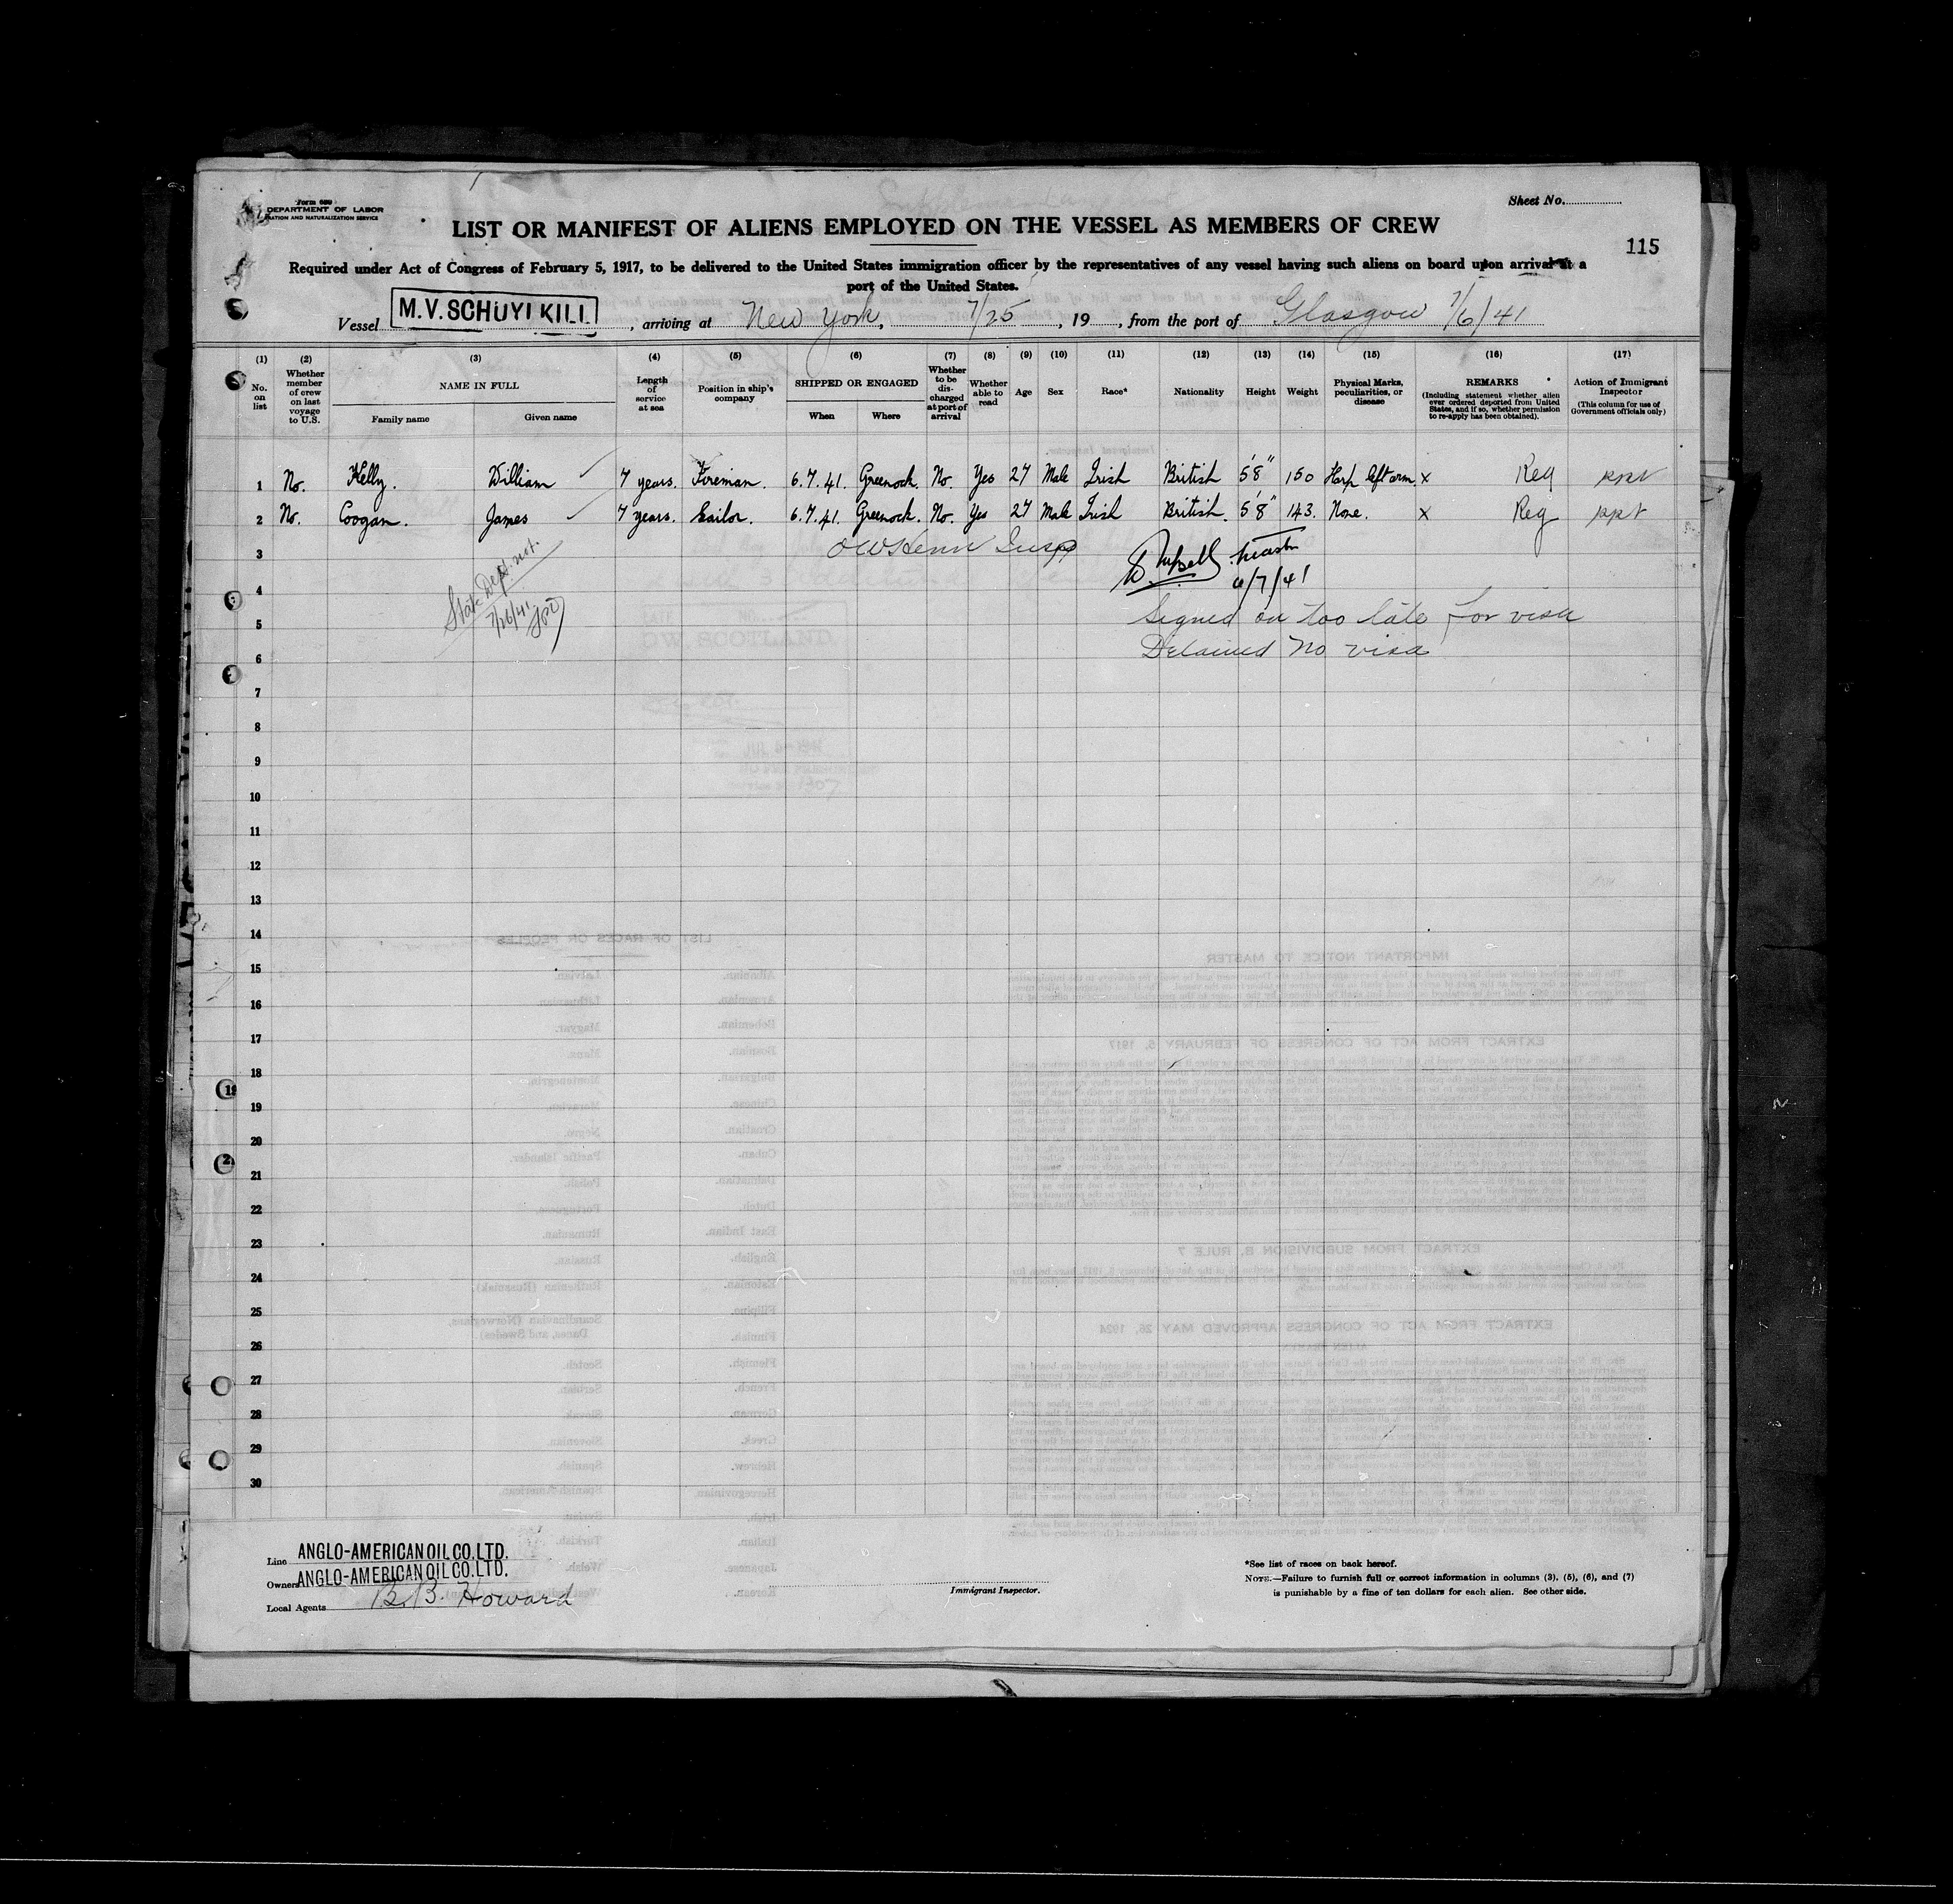 Form 680
DEPARTMENT OF LABOR
IMMIGRATION AND NATURALIZATION SERVICE
Sheet No.
LIST OR MANIFEST OF ALIENS EMPLOYED ON THE VESSEL AS MEMBERS OF CREW
115
Required under Act of Congress of February 5, 1917, to be delivered to the United States immigration officer by the representatives of any vessel having such aliens on board upon arrival at a
port of the United States.
Vessel M.V. SCHUYLKILL, arriving at New York, 7/25, 19 , from the port of Glasgow 7/6/41
(1) (2) (3) (4) (5) (6) (7) (8) (9) (10) (11) (12) (13) (14) (15) (16) (17)
No. on list Whether member of crew on last voyage to U.S. NAME IN FULL Family name Given name Length of service at sea Position in ship's company SHIPPED OR ENGAGED When Where Whether to be discharged at port of arrival Whether able to read Age Sex Race* Nationality Height Weight Physical Marks, peculiarities, or disease REMARKS (Including statement whether alien ever ordered deported from United States, and if so, whether permission to re-apply has been obtained). Action of Immigrant Inspector (This column for use of Government officials only)
1 No. Kelly. William 7 years. Fireman. 6.7.41. Greenock. No. Yes 27 Male Irish British 5'8" 150 Harp left arm. x Reg ppt
2 No. Coogan. James 7 years. Sailor. 6.7.41. Greenock. No. Yes 27 Male Irish British. 5'8" 143. None. x Reg ppt
3 Insp
State Dept. not.
7/26/41
4 6/7/41
5 Signed on too late for visa
6 Detained No visa
7
8
9
10
11
12
13
14
15
16
17
18
19
20
21
22
23
24
25
26
27
28
29
30
Line ANGLO-AMERICAN OIL CO. LTD.
Owners ANGLO-AMERICAN OIL CO. LTD.
Local Agents B.B. Howard
Immigrant Inspector.
*See list of races on back hereof.
NOTE.—Failure to furnish full or correct information in columns (3), (5), (6), and (7)
is punishable by a fine of ten dollars for each alien. See other side.